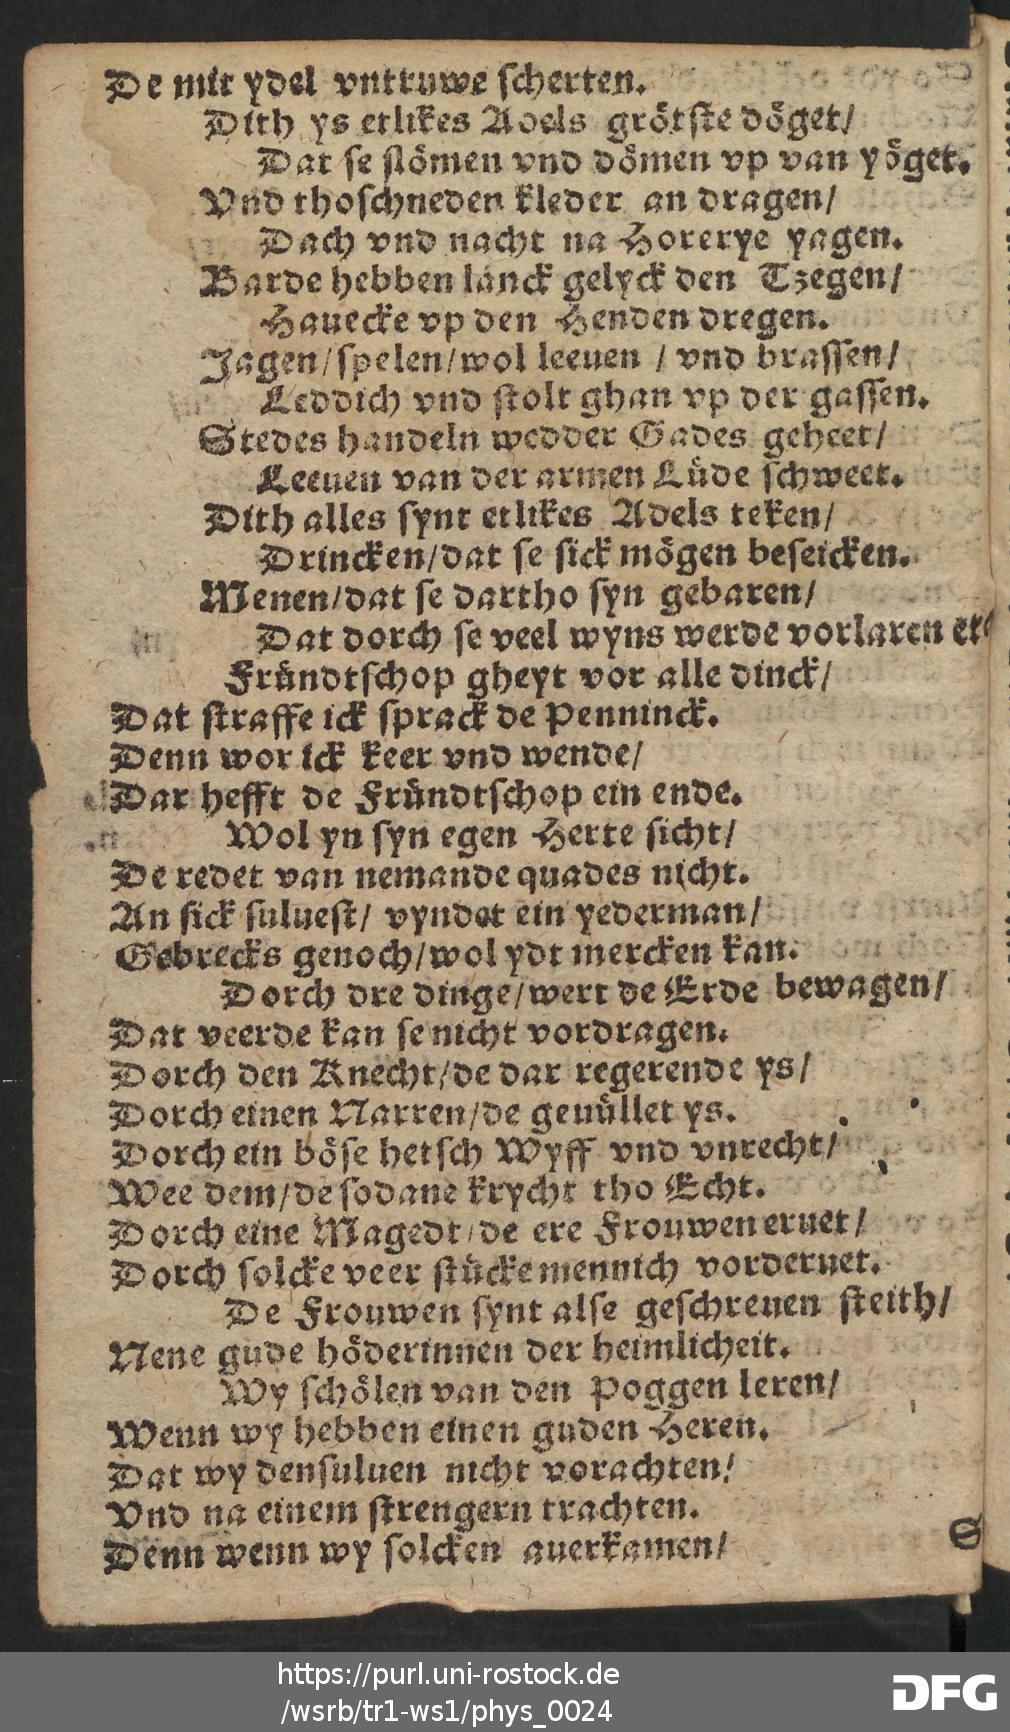 De mit ydel vntruwe scherten.
Dith ys etlikes Adels grötste döget/
Dat se slömen vnd dömen vp van yöget.
Vnd thoschneden kleder an dragen/
Dach vnd nacht na Horerye yagen.
Barde hebben lanck gelyck den Tzegen/
Hauecke vp den Henden dregen.
Jagen/spelen/wol leeuen / vnd brassen/
Leddich vnd stolt ghan vp der gassen.
Stedes handeln wedder Gades geheet/
Leeuen van der armen Lüde schweet.
Dith alles synt etlikes Adels teken/
Drincken/dat se sick mögen beseicken.
Menen/dat se dartho syn gebaren/
Dat dorch se veel wyns werde vorlaren etc
Fründtschop gheyt vor alle dinck/
Dat straffe ick sprack de Penninck.
Denn wor ick keer vnd wende/
Dar hefft de Fründtschop ein ende.
Wol yn syn egen Herte sicht/
De redet van nemande quades nicht.
An sick suluest/ vyndet ein yederman/
Gebrecks genoch/wol ydt mercken kan.
Dorch dre dinge/wert de Erde bewagen/
Dat veerde kan se nicht vordragen.
Dorch den Knecht/de dar regerende ys/
Dorch einen Narren/de geuüllet ys.
Dorch ein böse hetsch Wyff vnd vnrecht/
Wee dem/de sodane krycht tho Echt.
Dorch eine Magedt/de ere Frouwen eruet/
Dorch solcke veer stücke mennich vorderuet.
De Frouwen synt alse geschreuen steith/
Nene gude höderinnen der heimlicheit.
Wy schölen van den Poggen leren/
Wenn wy hebben einen guden Heren.
Dat wy densuluen nicht vorachten/
Vnd na einem strengern trachten.
Denn wenn wy solcken auerkamen/
S
https://purl.uni-rostock.de
/wsrb/tr1-ws1/phys_0024
DFG